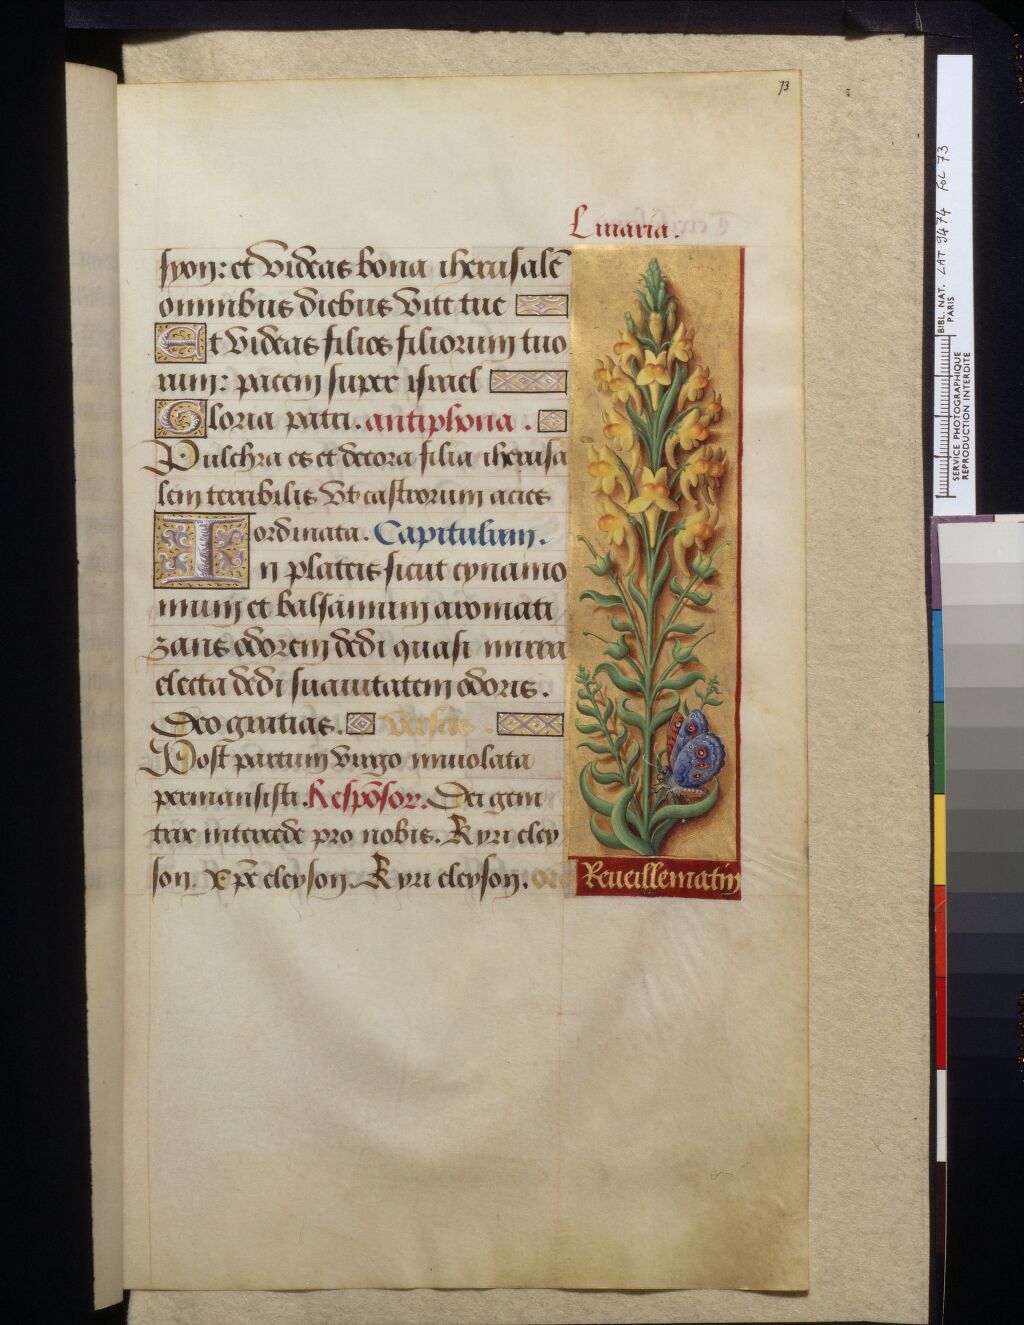 73
Linaria.
syon: et videas bona iherusalē
omnibus diebus vite tue
Et videas filios filiorum tuo
rum: pacem super israel
Gloria patri. antiphona.
Pulchra es et decora filia iherusa
lem terribilis vt castrorum acies
ordinata. Capitulum.
In plateis sicut cynamo
mum et balsamum aromati
zans odorem dedi quasi mirra
electa dedi suauitatem odoris.
Deo gratias. verseis.
Post partum virgo inuiolata
permansisti. Respōsor. Dei geni
trix intercede pro nobis. Kyri eley
son. Xp̄e eleyson. Kyri eleyson. oro
Reueillematin
BIBL. NAT. LAT 9474 FOL 73
PARIS
SERVICE PHOTOGRAPHIQUE
REPRODUCTION INTERDITE